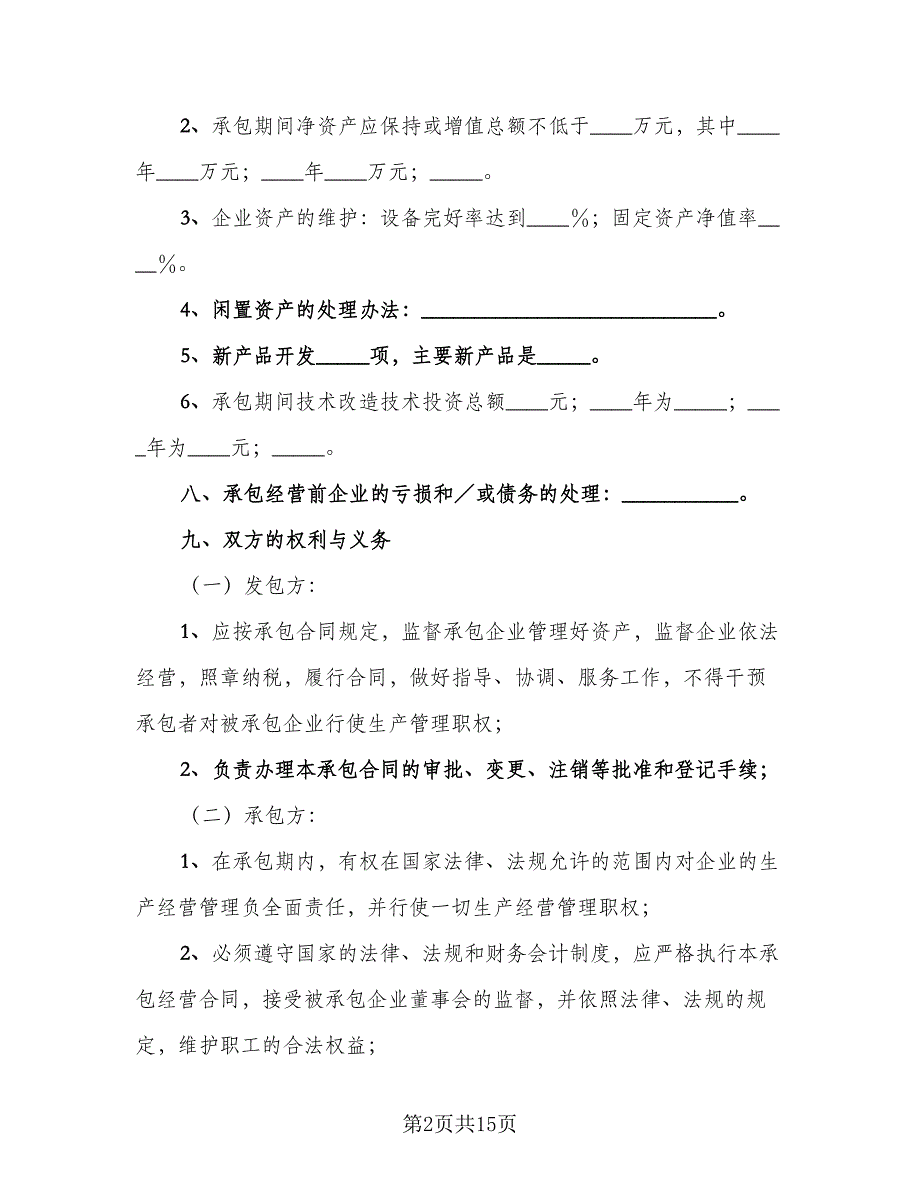 2、承包期间净资产应保持或增值总额不低于____万元，其中____
年____万元；____年____万元；_____。
3、企业资产的维护：设备完好率达到____％；固定资产净值率__
__％。
4、闲置资产的处理办法：____________________________。
5、新产品开发_____项，主要新产品是_____。
6、承包期间技术改造技术投资总额____元；____年为_____；___
_年为____元；_____。
八、承包经营前企业的亏损和／或债务的处理：___________。
九、双方的权利与义务
（一）发包方：
1、应按承包合同规定，监督承包企业管理好资产，监督企业依法
经营，照章纳税，履行合同，做好指导、协调、服务工作，不得干预
承包者对被承包企业行使生产管理职权；
2、负责办理本承包合同的审批、变更、注销等批准和登记手续；
（二）承包方：
1、在承包期内，有权在国家法律、法规允许的范围内对企业的生
产经营管理负全面责任，并行使一切生产经营管理职权；
2、必须遵守国家的法律、法规和财务会计制度，应严格执行本承
包经营合同，接受被承包企业董事会的监督，并依照法律、法规的规
定，维护职工的合法权益；
第2页共15页